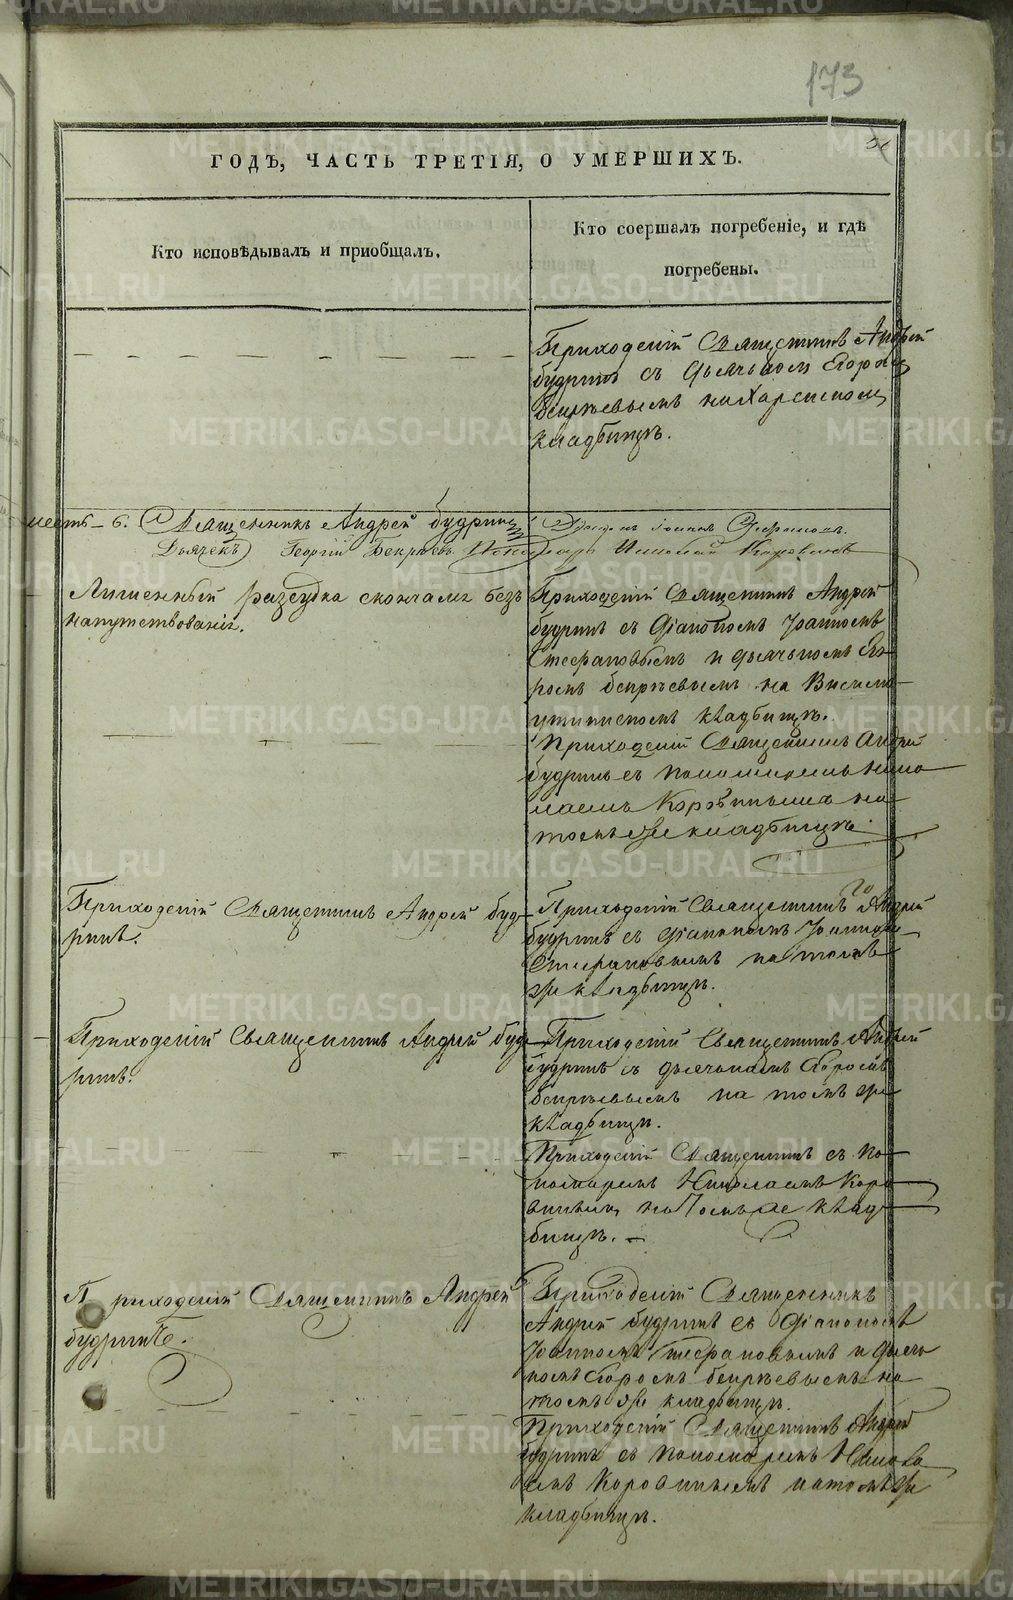 173
ГОДЪ, ЧАСТЬ ТРЕТІЯ, О УМЕРШИХЪ.
Кто исповѣдывалъ и приобщалъ.
Кто соершалъ погребеніе, и гдѣ
погребены.
Приходскій Священникъ Андрей
Будринъ съ дьячкомъ Егоромъ
Бекрѣевымъ на
кладбищѣ.
6. Священникъ Андрей Будринъ
Діаконъ Іоаннъ Стефановъ.
Дьячекъ Георгій Бекрѣевъ Пономарь Николай Коровинъ
Лишенный разсудка скончался безъ
напутствованія.
Приходскій Священникъ Андрей
Будринъ съ Діакономъ Іоанномъ
Стефановымъ и дьячкомъ Его-
ромъ Бекрѣевымъ на
кладбищѣ.
Приходскій Священникъ Андрей
Будринъ съ пономаремъ Нико-
лаемъ Коровинымъ на
томъ же кладбищѣ.
Приходскій Священникъ Андрей Буд-
ринъ.
Приходскій Священникъ Андрей
Будринъ съ Діакономъ Іоанномъ
Стефановымъ на томъ
же кладбищѣ.
Приходскій Священникъ Андрей Буд-
ринъ.
Приходскій Священникъ Андрей
Будринъ съ дьячкомъ Егоромъ
Бекрѣевымъ на томъ же
кладбищѣ.
Приходскій Священникъ съ по-
номаремъ Николаемъ Коро-
винымъ на томъ же клад-
бищѣ.
Приходскій Священникъ Андрей
Будринъ.
Приходскій Священникъ
Андрей Будринъ съ Діакономъ
Іоанномъ Стефановымъ и дьяч-
комъ Егоромъ Бекрѣевымъ на
томъ же кладбищѣ.
Приходскій Священникъ Андрей
Будринъ съ пономаремъ Никола-
емъ Коровинымъ на томъ же
кладбищѣ.
METRIKI.GASO-URAL.RU